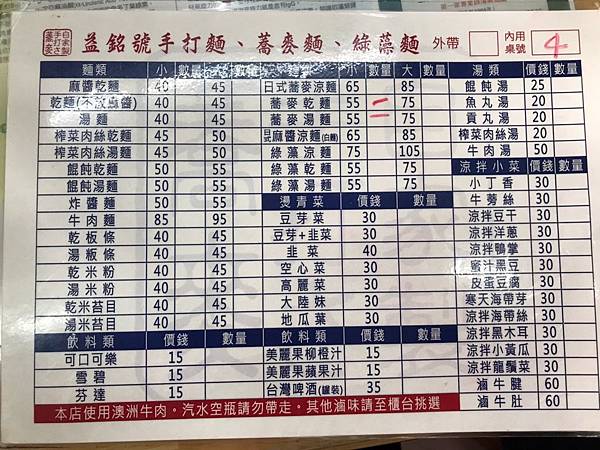 自家製 手打さ 蕎麥 益銘號手打麵、蕎麥麵、綠藻麵 外帶 內用桌號 4
麵類 小 數量 大 數量
麻醬乾麵 40 45
乾麵(不放麻醬) 40 45
湯麵 40 45
榨菜肉絲乾麵 45 50
榨菜肉絲湯麵 45 50
餛飩乾麵 50 55
餛飩湯麵 50 55
炸醬麵 50 55
牛肉麵 85 95
乾板條 40 45
湯板條 40 45
乾米粉 40 45
湯米粉 40 45
乾米苔目 40 45
湯米苔目 40 45
飲料類 價錢 數量
可口可樂 15
雪碧 15
芬達 15
麵類 小 數量 大 數量
日式蕎麥涼麵 65 85
蕎麥乾麵 55 一 75
蕎麥湯麵 55 二 75
日式麻醬涼麵(白麵) 65 85
綠藻涼麵 75 105
綠藻乾麵 55 75
綠藻湯麵 55 75
燙青菜 價錢 數量
豆芽菜 30
豆芽+韭菜 30
韭菜 40
空心菜 30
高麗菜 30
大陸妹 30
地瓜葉 30
飲料類 價錢 數量
美麗果柳橙汁 15
美麗果蘋果汁 15
台灣啤酒(罐裝) 35
湯類 價錢 數量
餛飩湯 25
魚丸湯 20
貢丸湯 20
榨菜肉絲湯 20
牛肉湯 50
涼拌小菜 價錢 數量
小丁香 30
牛蒡絲 30
涼拌豆干 30
涼拌洋蔥 30
涼拌鴨掌 30
蜜汁黑豆 30
皮蛋豆腐 30
寒天海帶芽 30
涼拌海帶絲 30
涼拌黑木耳 30
涼拌小黃瓜 30
涼拌龍鬚菜 30
滷牛腱 60
滷牛肚 60
本店使用澳洲牛肉。汽水空瓶請勿帶走。其他滷味請至櫃台挑選